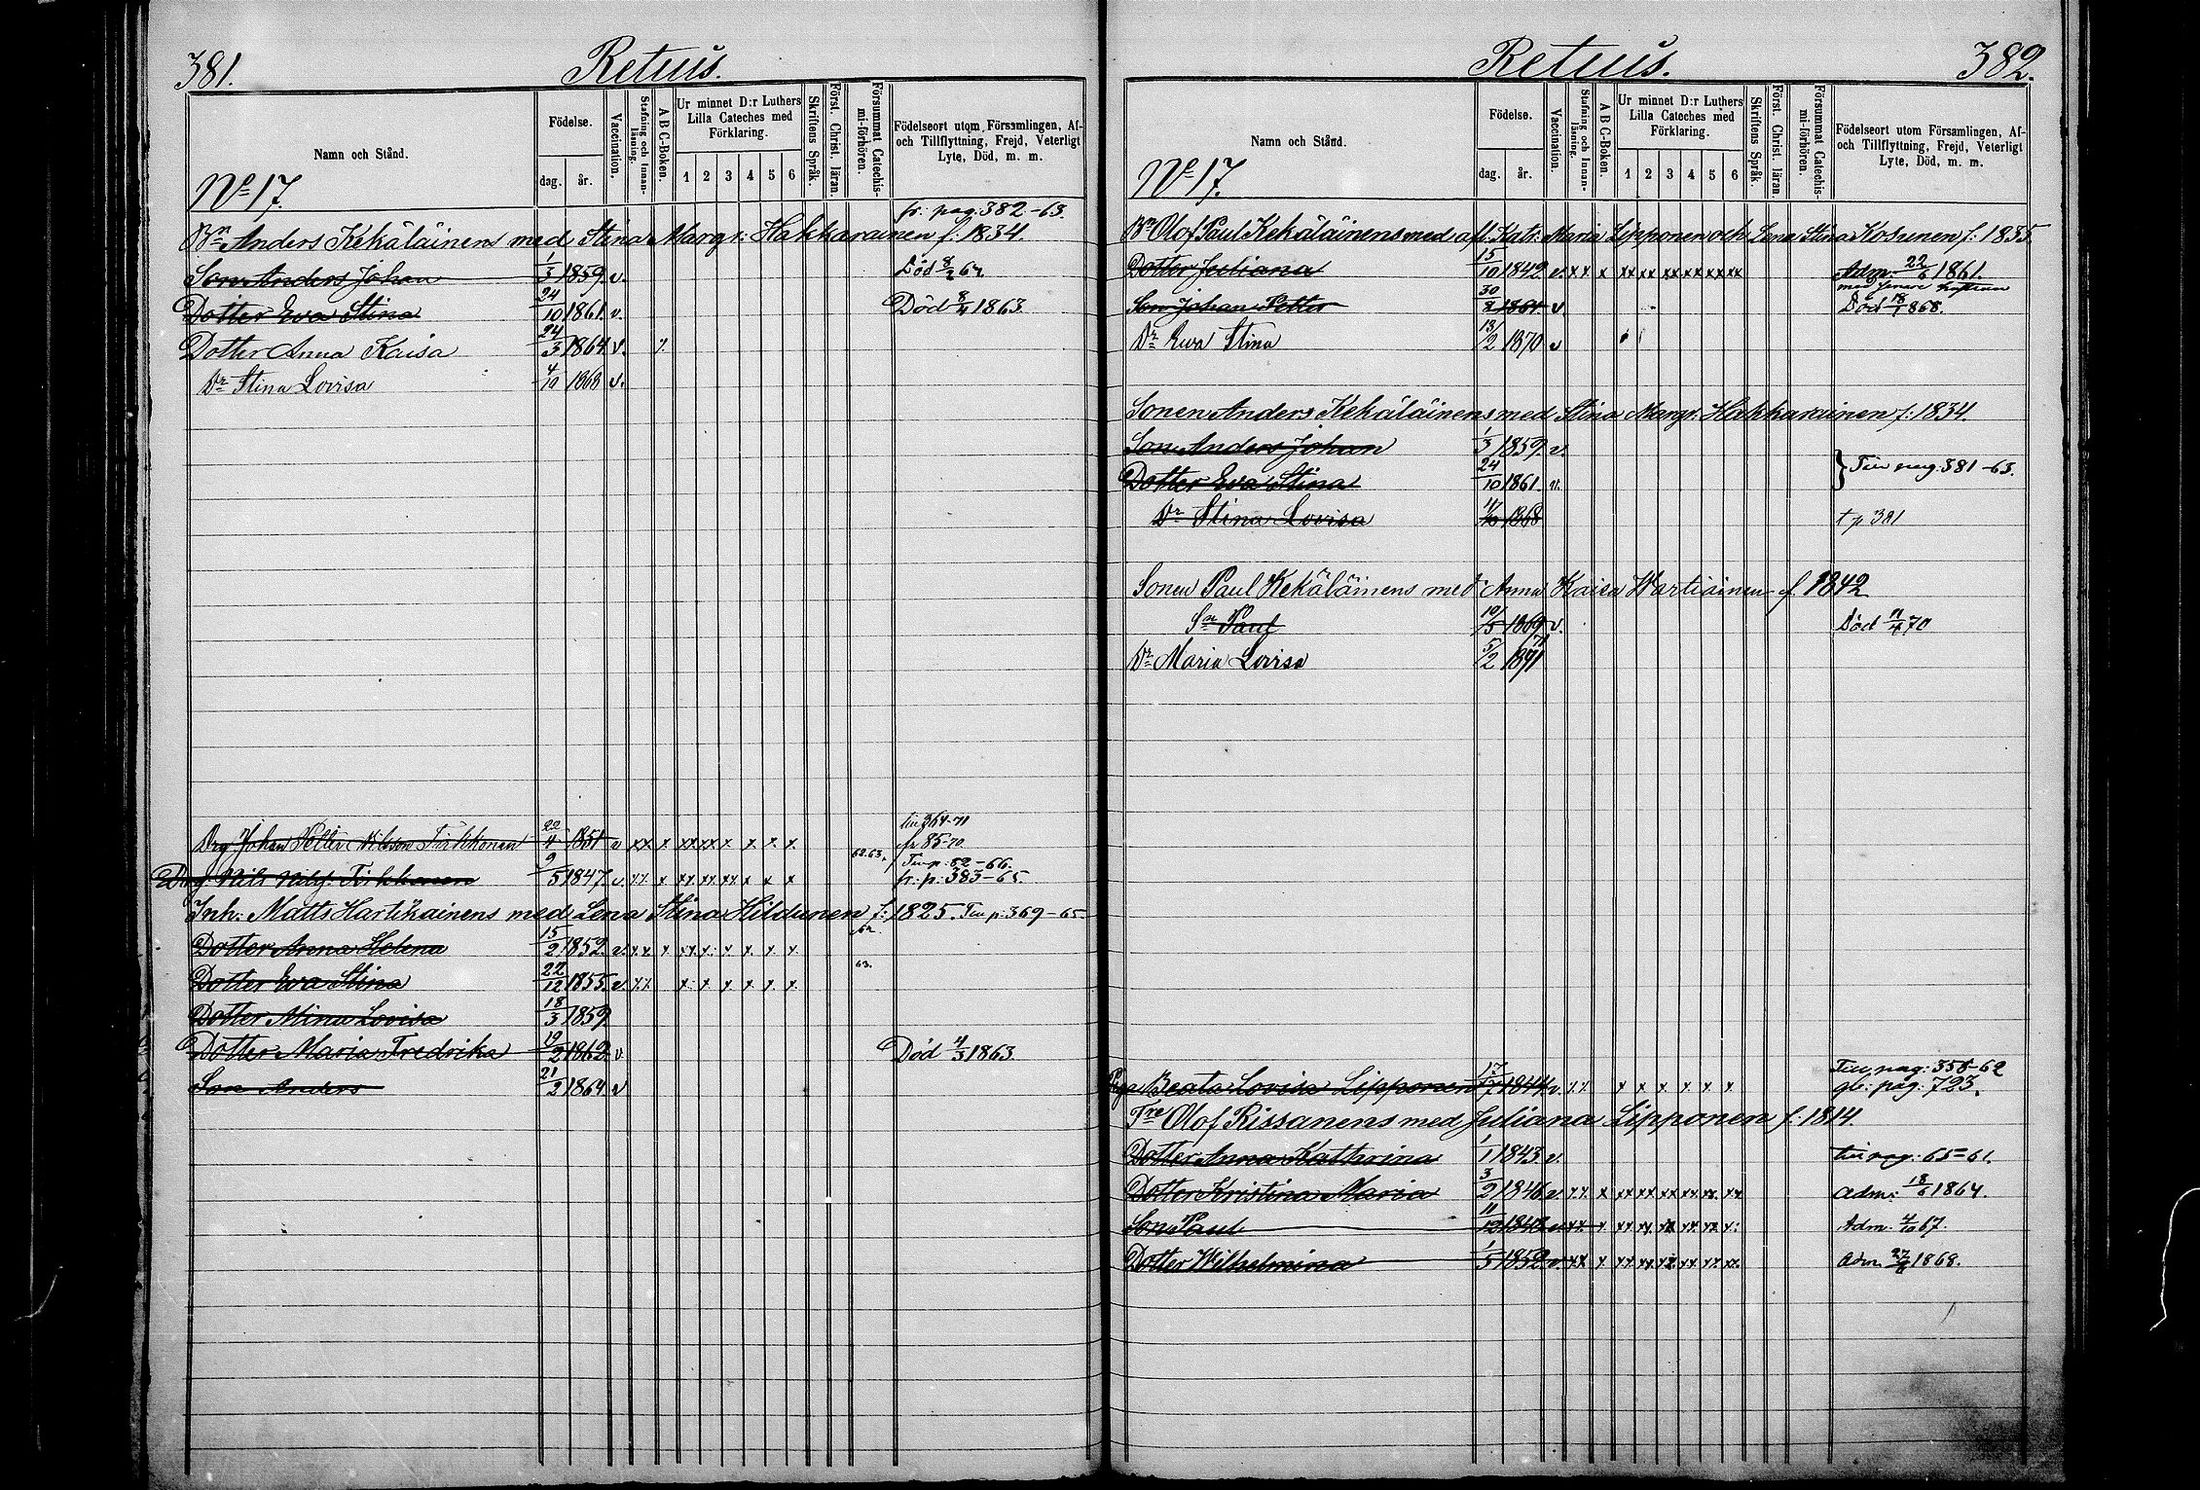 381.
Retuus.
Namn och Stånd.
Födelse.
dag.
år.
Vaccination.
Stafning och Innan-
läsning.
A B C-Boken.
Ur minnet D:r Luthers
Lilla Cateches med
Förklaring.
1 2 3 4 5 6
Skriftens Språk.
Först. Christ. läran.
Försummat Catechis-
mi-förhören.
Födelseort utom Församlingen, Af-
och Tillflyttning, Frejd, Veterligt
Lyte, Död, m. m.
No 17.
fr: pag: 382-63.
Bn Anders Kekäläinens med Stina Margr: Hakkarainen f. 1834.
Son Anders Johan 1/3 1859 v. Död 8/2 67
Dotter Eva Stina 24/10 1861 v. Död 8/4 1863.
Dotter Anna Kaisa 24/3 1864 v. x
Dr Stina Lovisa 4/10 1868 v.
364-71
Drg Johan Petter Nilsson Tirkkonen 22/4 1851 v xx x xx xx x x x x fr 85-70
62.63. 82-66.
Drg Nils Nilss: Tirkkonen 9/5 1847 v. xx x xx xx xx x x x fr: p: 383-65.
Inh: Matts Hartikainens med Lena Stina Hildunen f: 1825. p: 369-65.
Dotter Anna Helena 15/2 1852 v. xx x xx x x x x x
63.
Dotter Eva Stina 22/12 1855 v. xx x x x x x x
Dotter Mina Lovisa 18/3 1859
Dotter Maria Fredrika 19/2 1862 v Död 4/3 1863.
Son Anders 21/2 1864 v
382.
Retuus.
Namn och Stånd.
Födelse.
dag.
år.
Vaccination.
Stafning och Innan-
läsning.
A B C-Boken.
Ur minnet D:r Luthers
Lilla Cateches med
Förklaring.
1 2 3 4 5 6
Skriftens Språk.
Först. Christ. läran.
Försummat Catechis-
mi-förhören.
Födelseort utom Församlingen, Af-
och Tillflyttning, Frejd, Veterligt
Lyte, Död, m. m.
No 17.
Bn Olof Paul Kekäläinens med afl. Katr: Maria Lipponen och Lena Stina Kosunen f: 1835.
Dotter Juliana 15/10 1842 v. xx x xx xx xx xx xx xx Adm: 22/6 1861.
med senare hustrun
Son Johan Petter 30/8 1864 v Död 18/1 1868.
Dr Eva Stina 18/2 1870 v
Sonen Anders Kekäläinens med Stina Margr: Hakkarainen f: 1834.
Son Anders Johan 1/3 1859 v.
pag: 381-63.
Dotter Eva Stina 24/10 1861. v.
Dr Stina Lovisa 4/10 1868 t p 381
Sonen Paul Kekäläinens med Anna Kaisa Wartiainen f. 1842
Sn Paul 10/5 1869 v. Död 11/4 70
Dr Maria Lovisa 5/2 1871
pag: 358-62
Piga Beata Lovisa Lipponen 17/7 1844. v. xx x x x x x x gl: pag: 723.
Tre Olof Rissanens med Juliana Lipponen f: 1814.
Dotter Anna Kathrina 1/1 1843 v. pag: 65-61.
Dotter Kristina Maria 3/2 1846 v. xx x xx xx xx xx xx xx adm: 18/6 1864.
Son Paul 11/12 1848 v xx x xx xx xx xx xx x. Adm. 4/10 67.
Dotter Wilhelmina 1/5 1852 v. xx x xx xx xx xx xx xx. adm 27/6 1868.